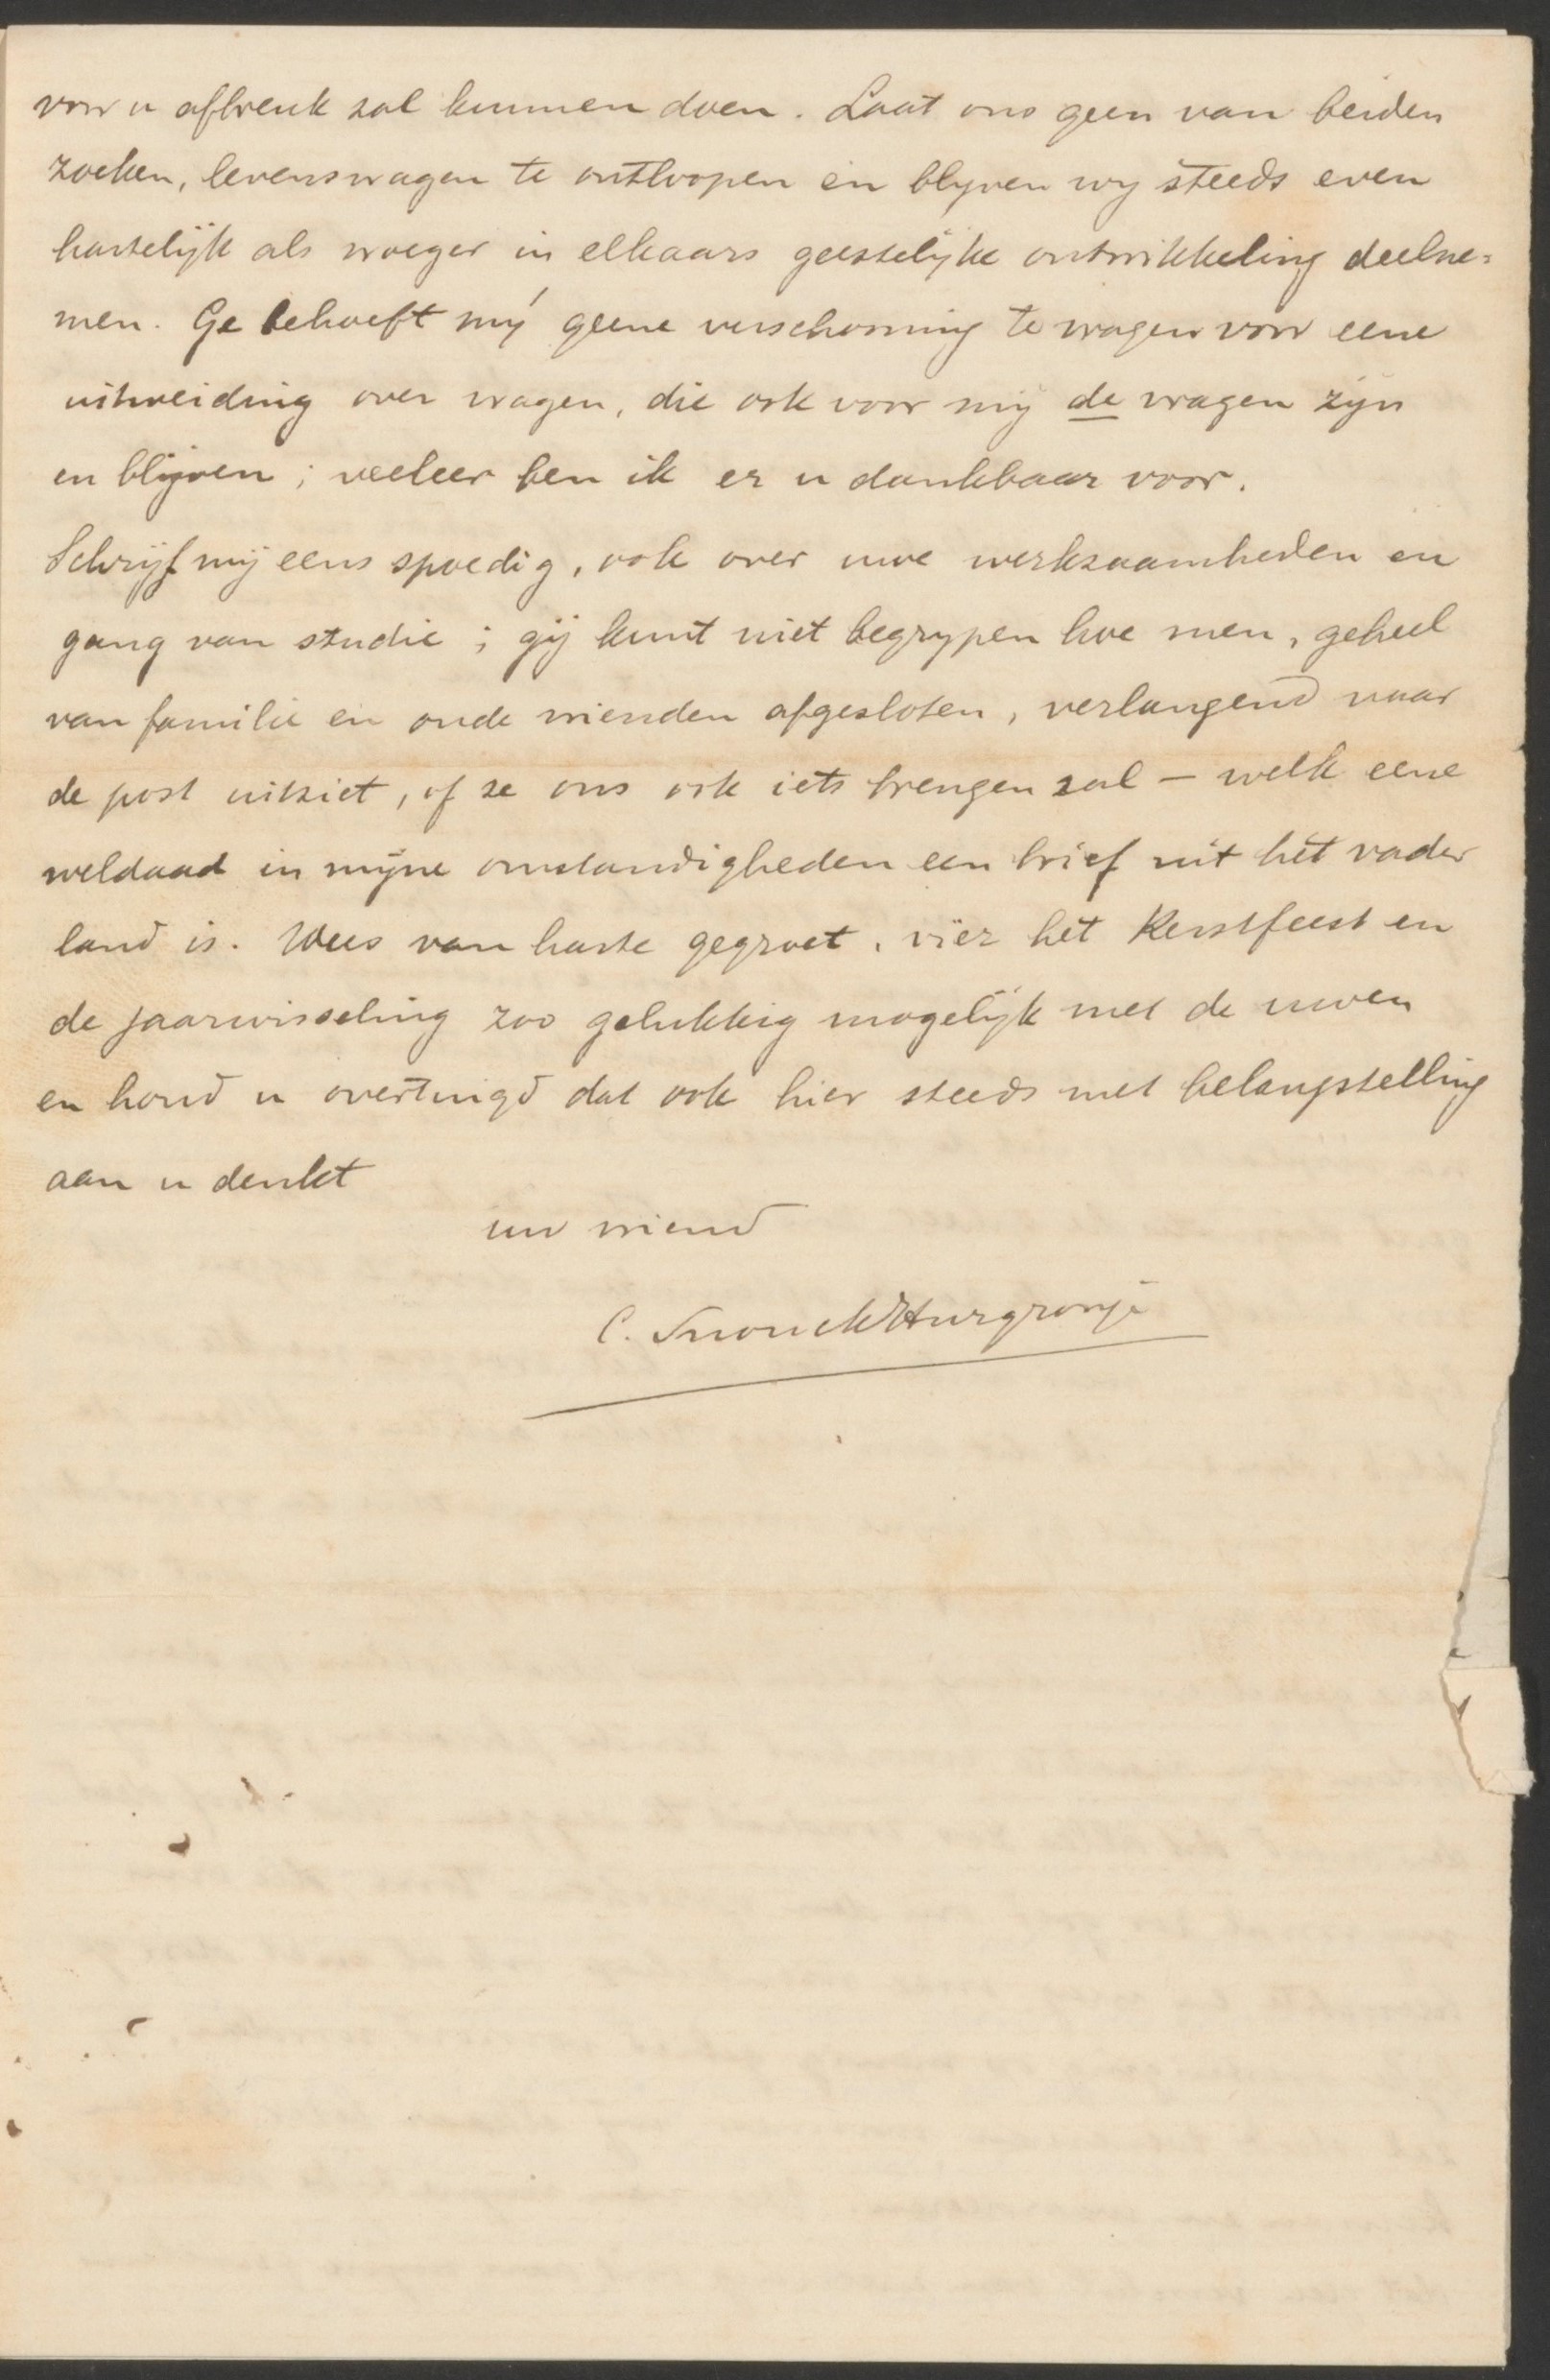 voor u afbreuk zal kunnen doen. Laat ons geen van beiden
zoeken, levensvragen te ontloopen en blijven wij steeds even
hartelijk als vroeger in elkaars geestelijke ontwikkeling deelne=
men. Ge behoeft mij geene verschooning te vragen voor eene
uitweiding over vragen, die ook voor mij de vragen zijn
en blijven; veeleer ben ik er u dankbaar voor.
Schrijf mij eens spoedig, ook over uwe werkzaamheden en
gang van studie; gij kunt niet begrijpen hoe men, geheel
van familie en oude vrienden afgesloten, verlangend naar
de post uitziet, of ze ons ook iets brengen zal — welk eene
weldaad in mijne omstandigheden een brief uit het vader
land is. Wees van harte gegroet, vier het Kerstfeest en
de jaarwisseling zoo gelukkig mogelijk met de uwen
en houd u overtuigd dat ook hier steeds met belangstelling
aan u denkt
uw vriend
C. Snouck Hurgronje